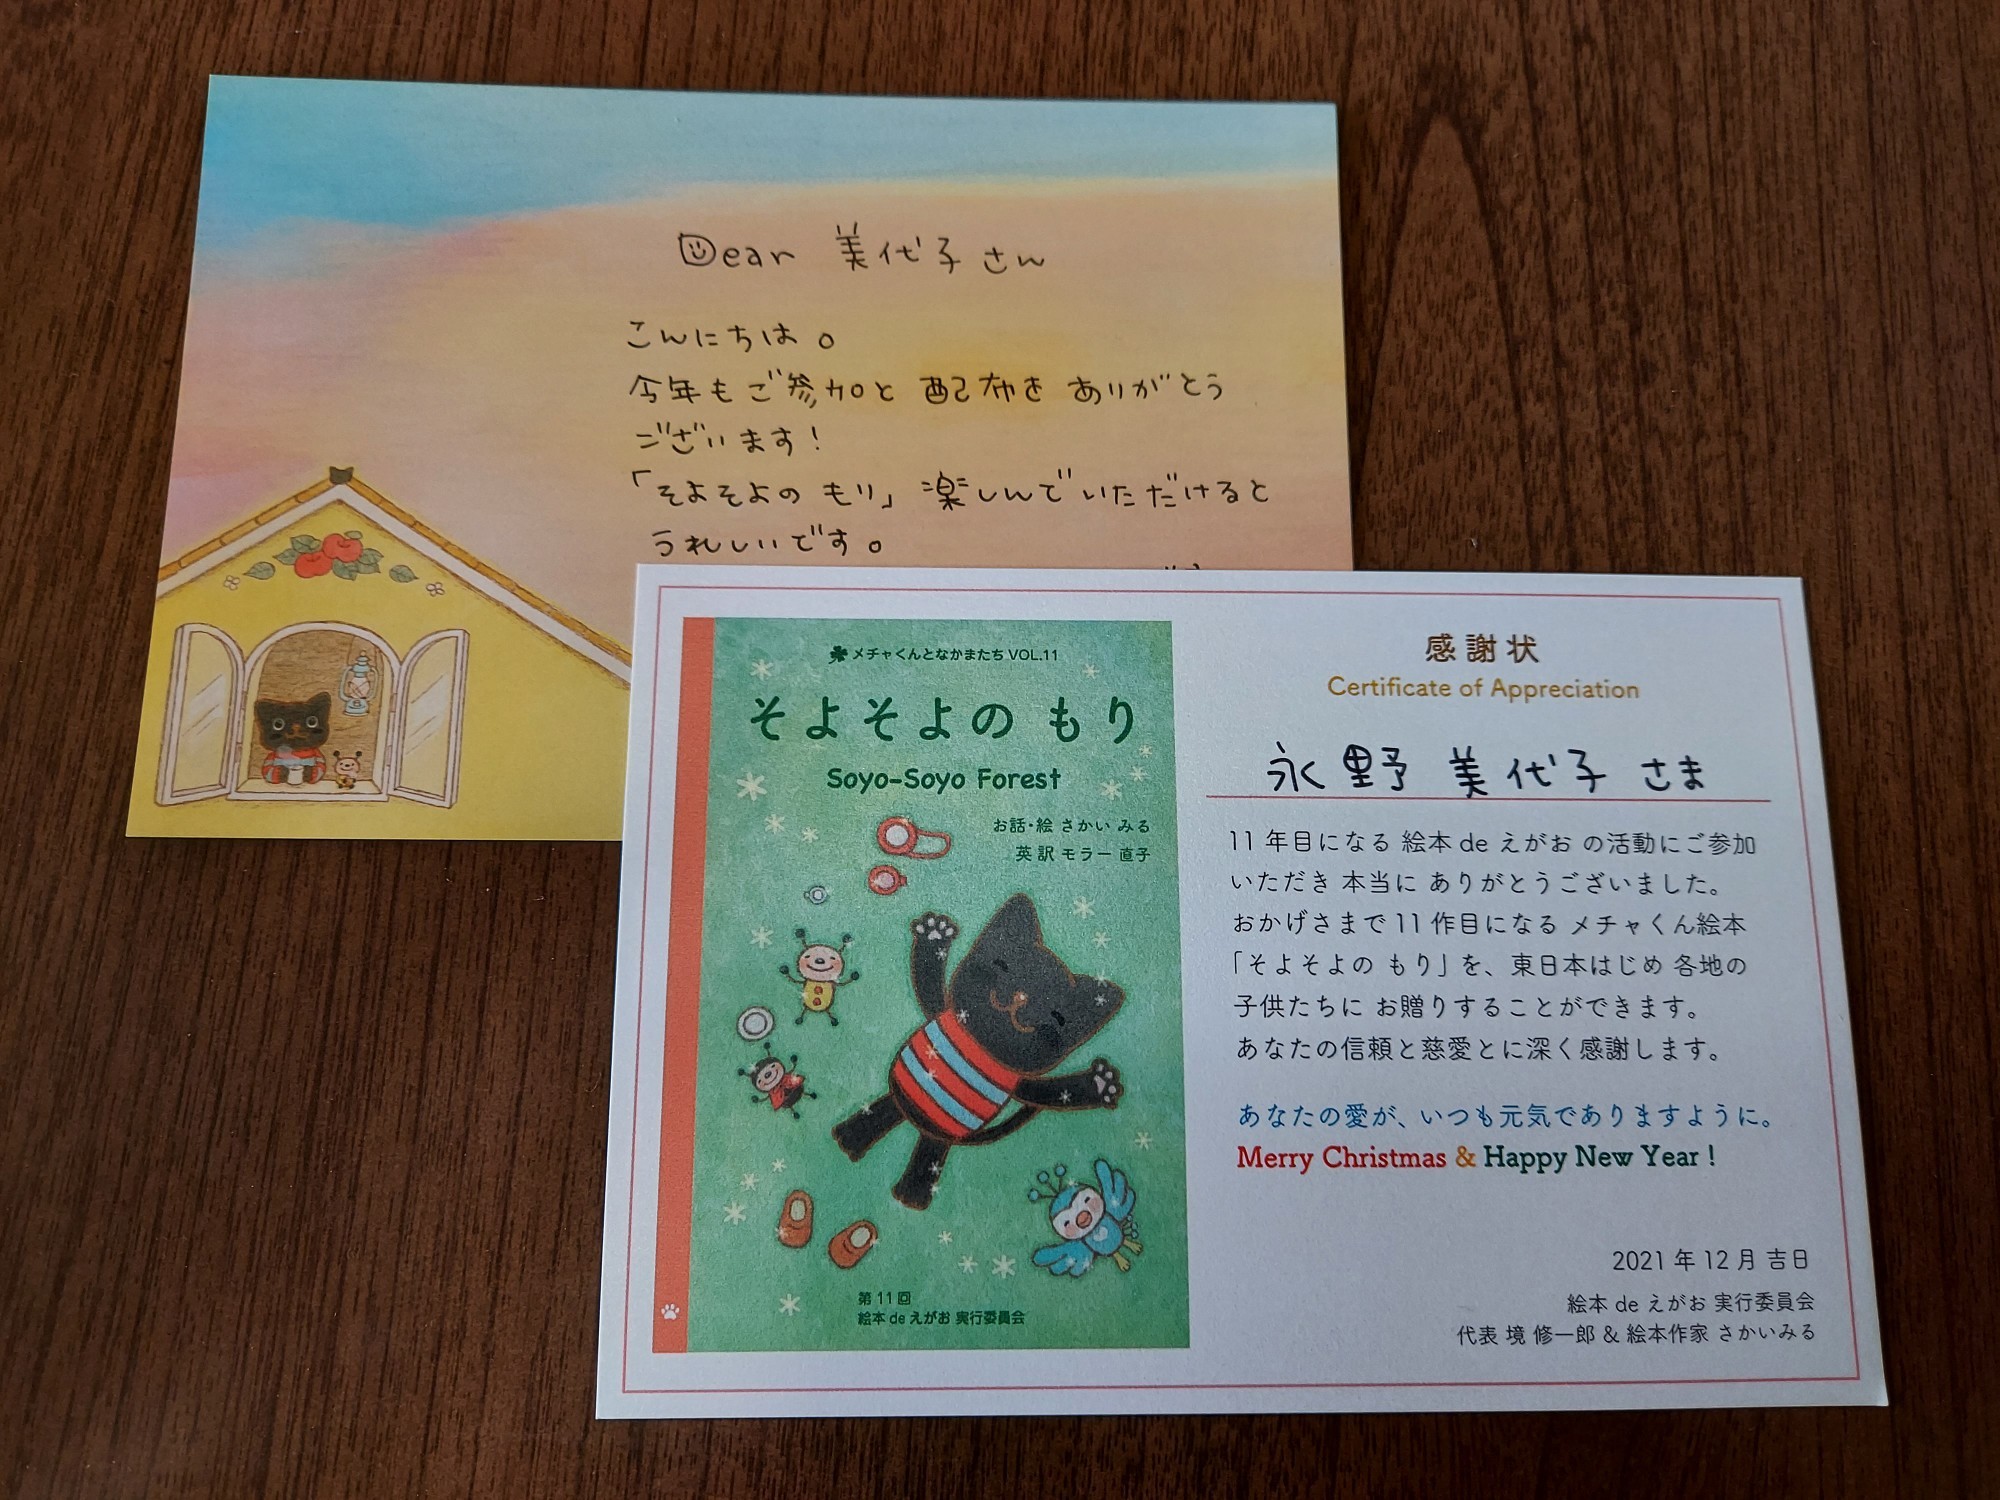 Dear 美代子さん
こんにちは。
今年もご参加と配布を ありがとう
ございます!
「そよそよの もり」楽しんでいただけると
うれしいです。
メチャくんとなかまたち VOL.11
そよそよの もり
Soyo-Soyo Forest
お話・絵 さかい みる
英訳 モラー 直子
第11回
絵本 de えがお 実行委員会
感謝状
Certificate of Appreciation
永野 美代子 さま
11年目になる 絵本 de えがお の活動にご参加
いただき 本当に ありがとうございました。
おかげさまで11作目になる メチャくん絵本
「そよそよの もり」を、東日本はじめ 各地の
子供たちに お贈りすることができます。
あなたの信頼と慈愛とに深く感謝します。
あなたの愛が、いつも元気でありますように。
Merry Christmas & Happy New Year !
2021 年 12 月 吉日
絵本 de えがお 実行委員会
代表 境 修一郎 & 絵本作家 さかいみる